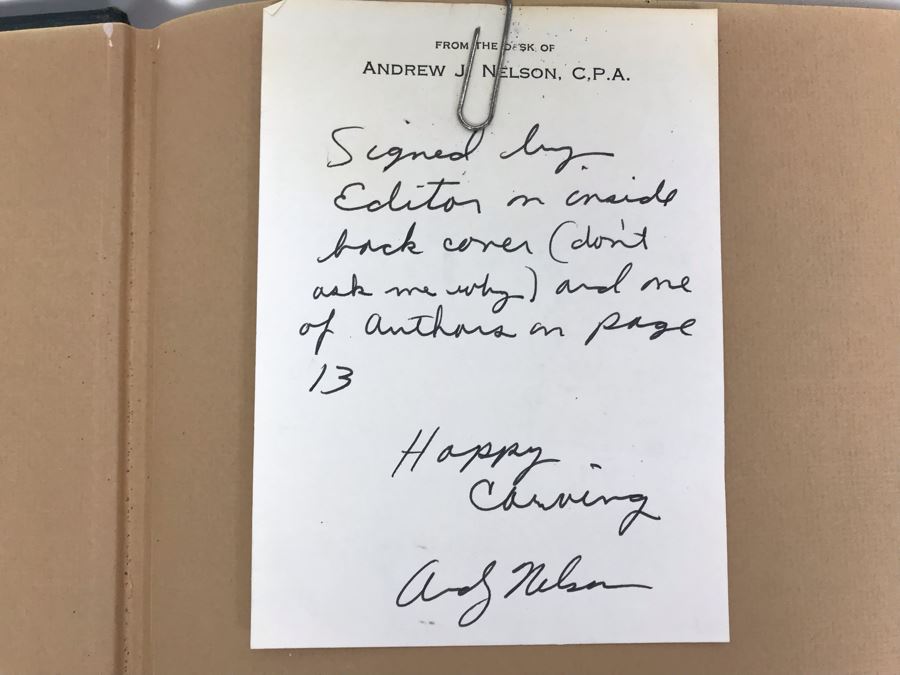 FROM THE DESK OF
ANDREW J. NELSON, C.P.A.
Signed by
Editor on inside
back cover (don't
ask me why) and one
of Authors on page
13
Happy
Carving
Andy Nelson